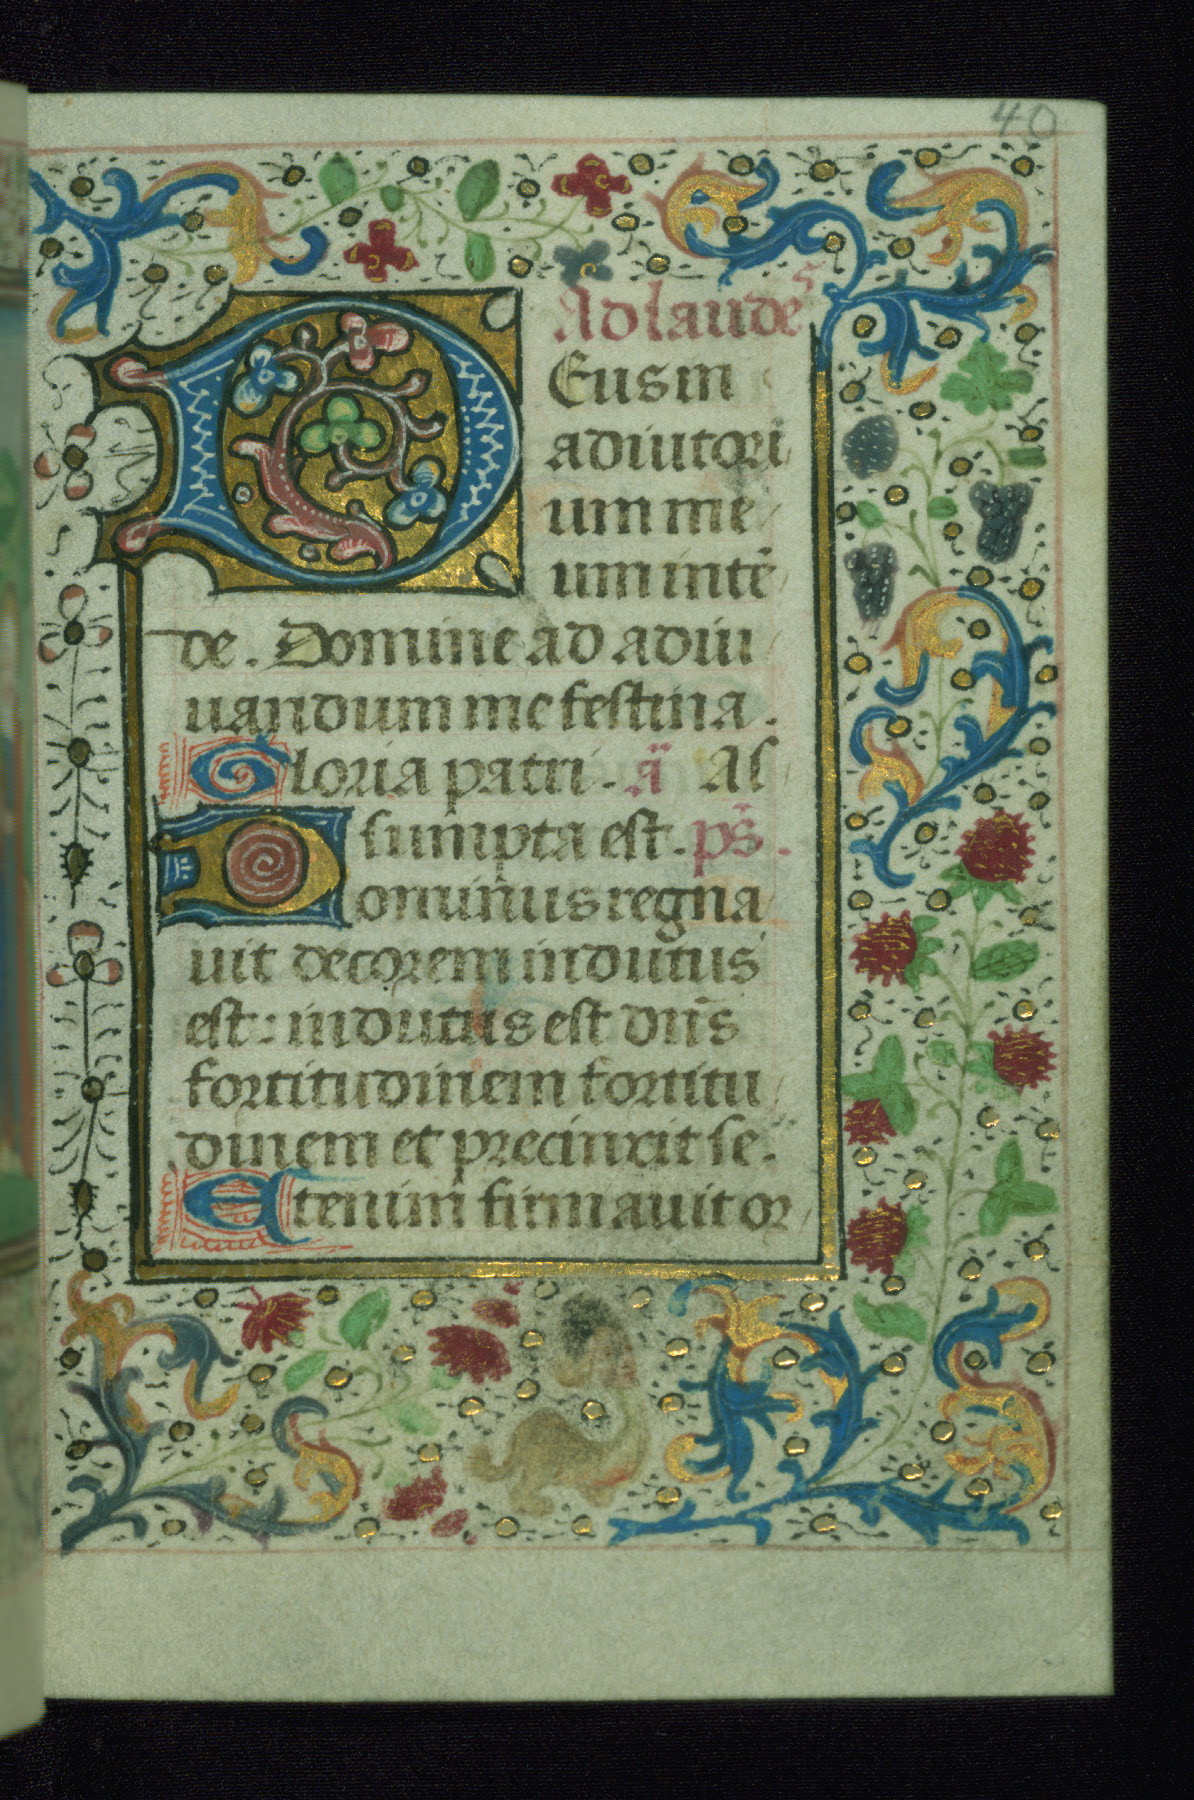 40
Ad laudes
Deus in
adiutori
um me
umintē
de. Domine ad adiu
uandum me festina.
Gloria patri. ā As
sumpta est. ps̄.
Dominus regna
uit decorem indutus
est: indutus est dn̄s
fortitudinem fortitu
dinem et precinxit se.
Etenim firmauit or